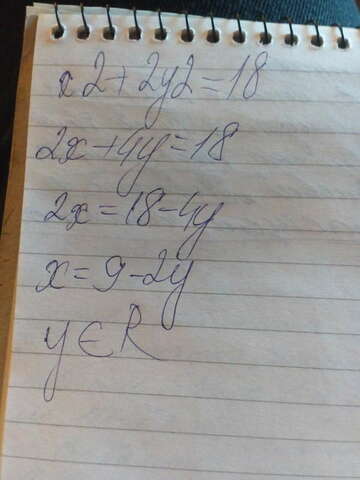 x2+2y2=18
2x+4y=18
2x=18-4y
x=9-2y
y∈R